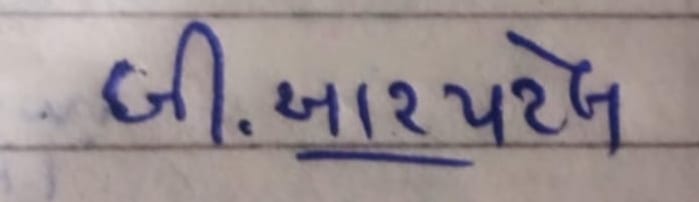 બી. આર પટેલ